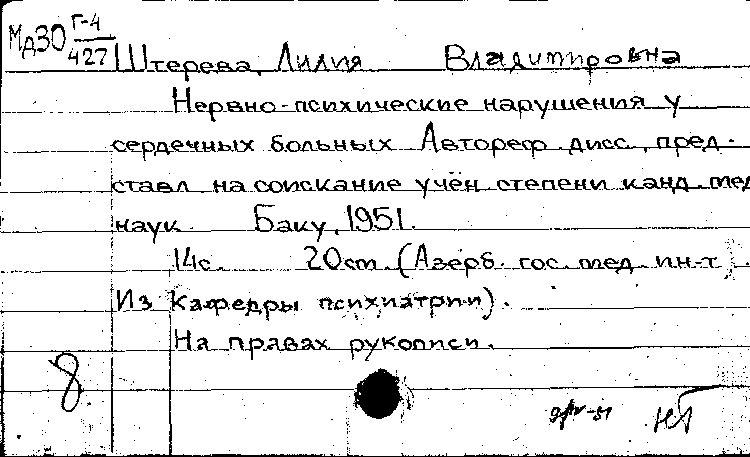 МД30 Г-4
427
Штерева, Лилия Владимировна
Нервно-психические нарушения у
сердечных больных Автореф. дисс., пред-
ставл на соискание учён степени канд. мед
наук. Баку, 1951.
14с. 20cm. (Азерб. гос. мед. ин-т
Из кафедры психиатрии).
На правах рукописи.
8